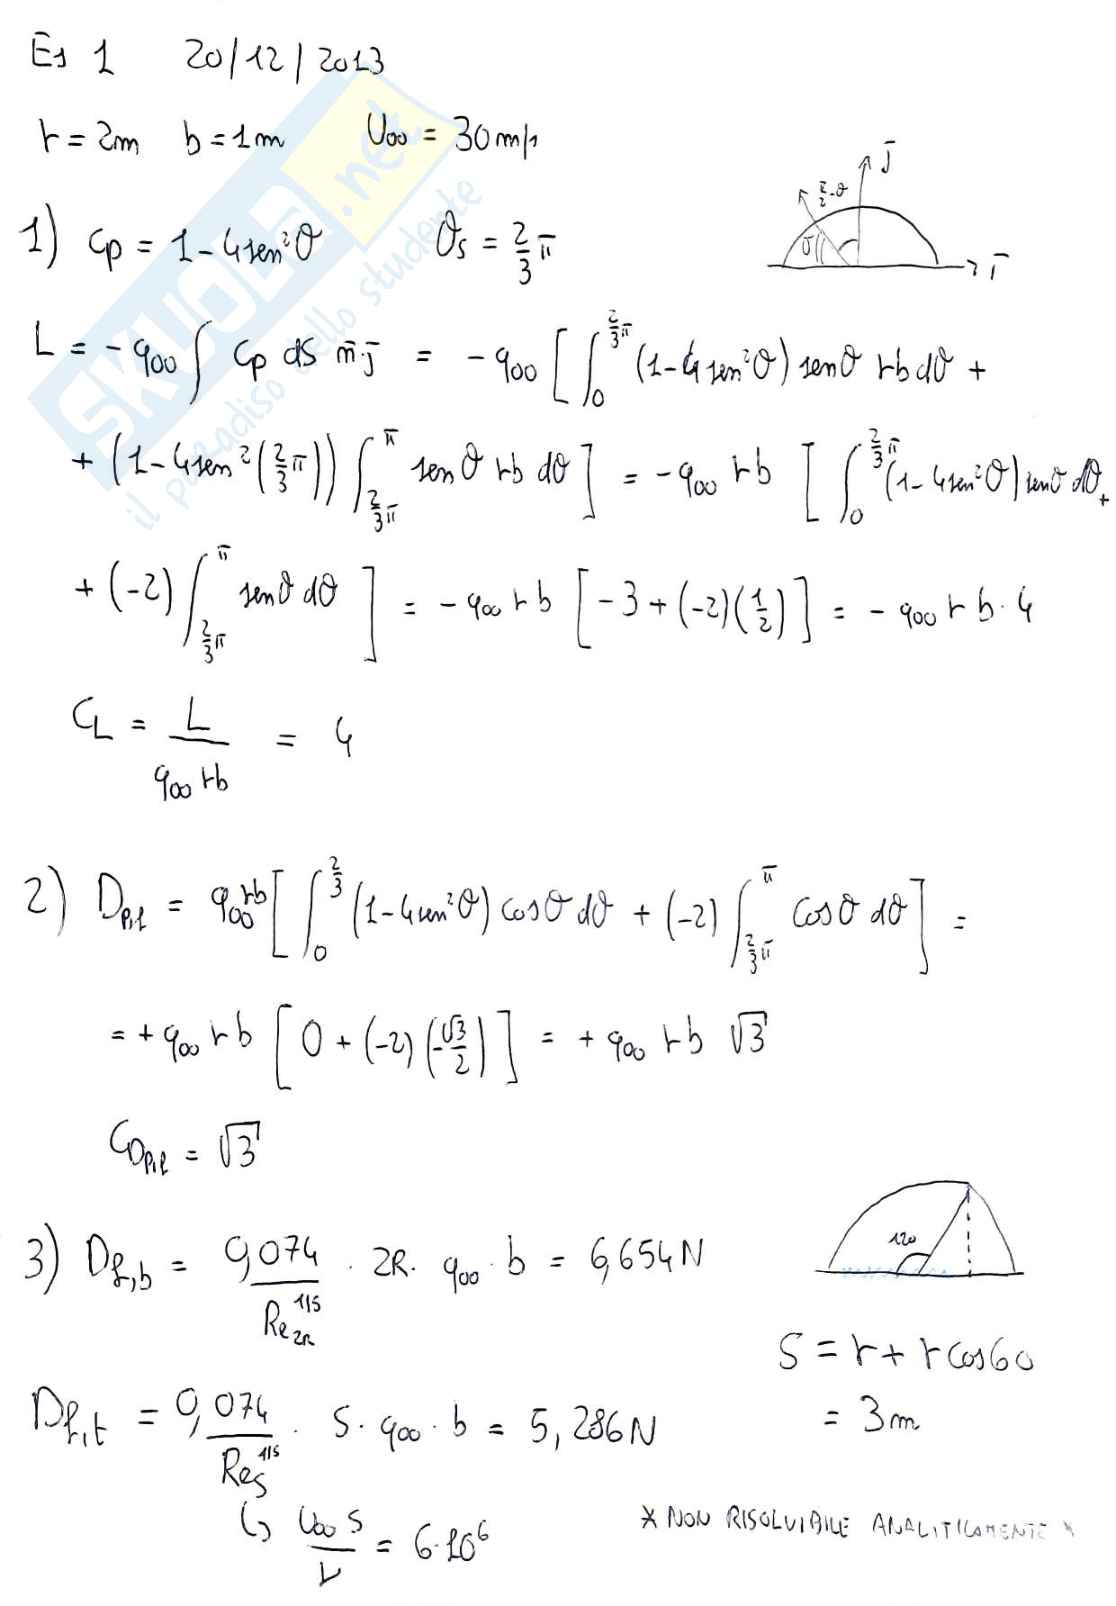 Es 1 20/12/2013
r = 2m b = 1m U∞ = 30 m/s
j
π/2-θ
θ
i
1) Cp = 1-4sen²θ θs = 2/3 π
L = -q∞ ∫ Cp dS n̄·j̄ = -q∞ [ ∫₀^(2/3 π) (1-4sen²θ) senθ rb dθ +
+ (1-4sen²(2/3 π)) ∫_(2/3 π)^π senθ rb dθ ] = -q∞ rb [ ∫₀^(2/3 π) (1-4sen²θ) senθ dθ +
+ (-2) ∫_(2/3 π)^π senθ dθ ] = -q∞ rb [ -3 + (-2)(1/2) ] = -q∞ r b · 4
CL = L / (q∞ rb) = 4
2) Dp,t = q∞ rb [ ∫₀^(2/3) (1-4sen²θ) cosθ dθ + (-2) ∫_(2/3 π)^π cosθ dθ ] =
= + q∞ rb [ 0 + (-2)(-√3/2) ] = + q∞ rb √3
CDp,t = √3
120
3) Df,b = 0,074 / Re₂R^(1/5) · 2R · q∞ · b = 6,654 N
S = r + r cos60
= 3m
Df,t = 0,074 / ReS^(1/5) · S · q∞ · b = 5,286 N
↳ U∞ S / ν = 6·10⁶
* NON RISOLVIBILE ANALITICAMENTE *
SKUOLA.net
il paradiso dello studente